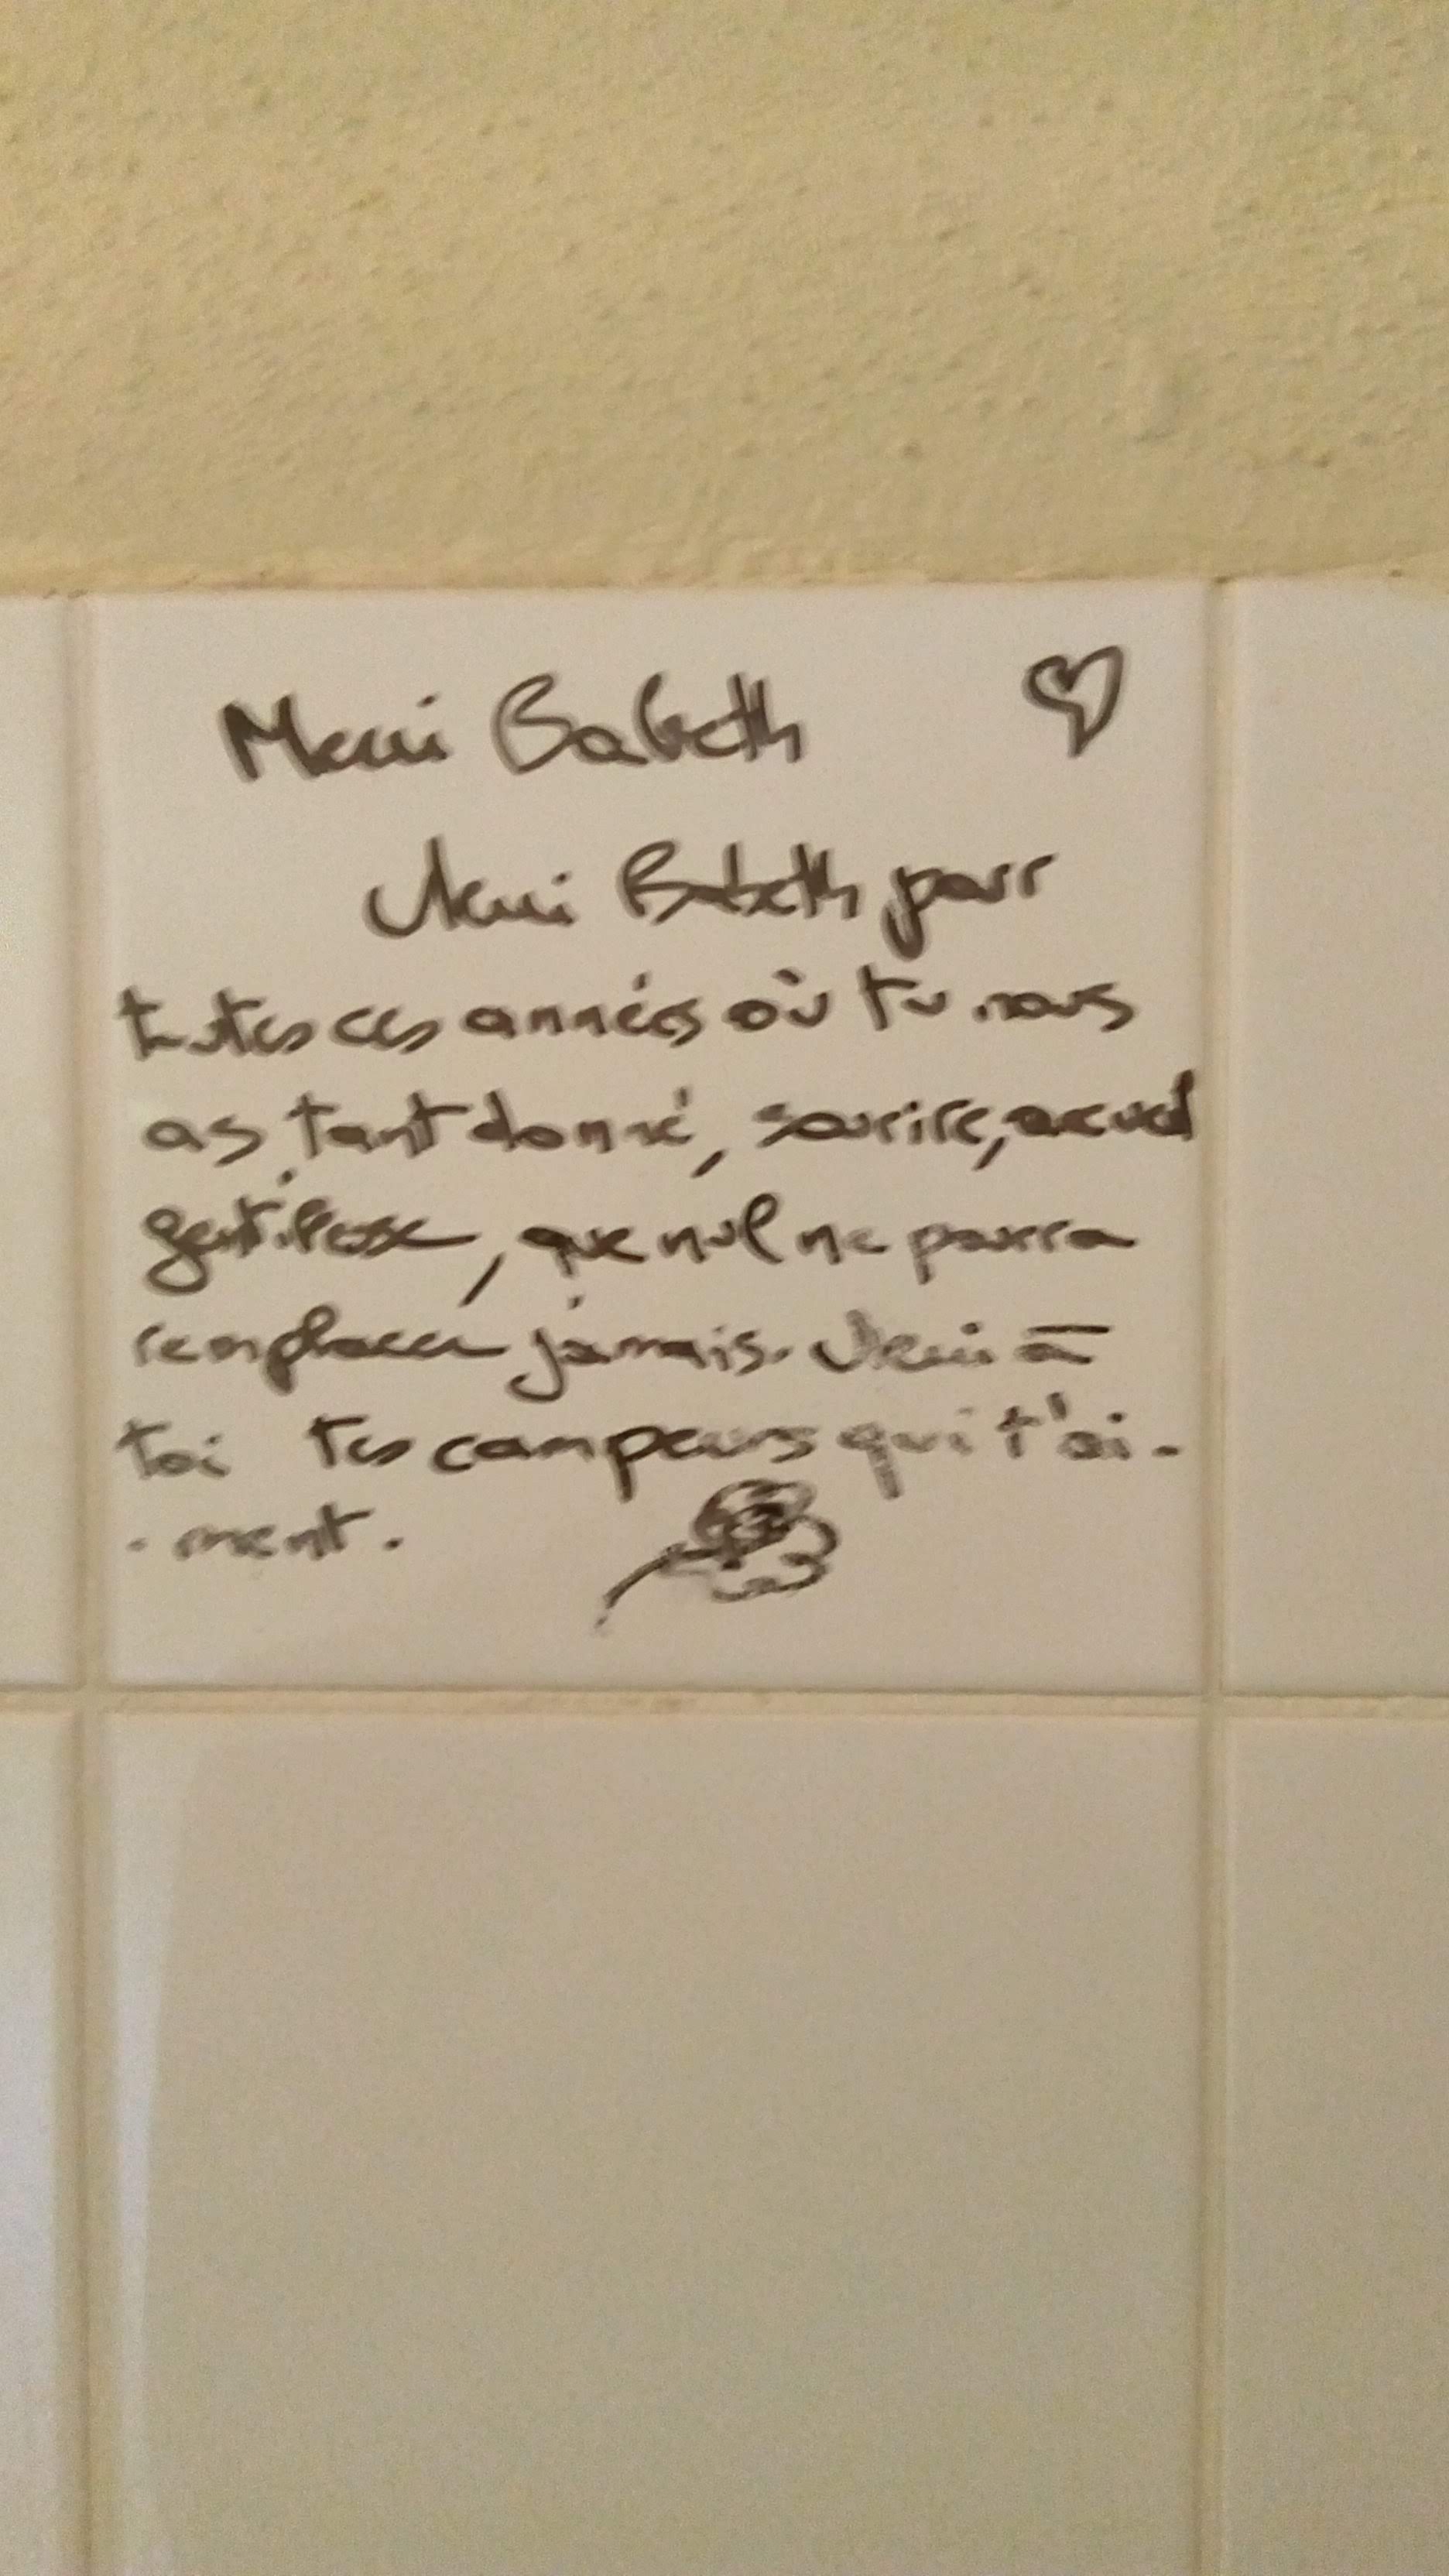 Merci Babeth
Merci Babeth pour
toutes ces années où tu nous
as tant donné, sourire, accueil
gentillesse, que nul ne pourra
remplacer jamais. Merci à
toi tes campeurs qui t'ai-
-ment.